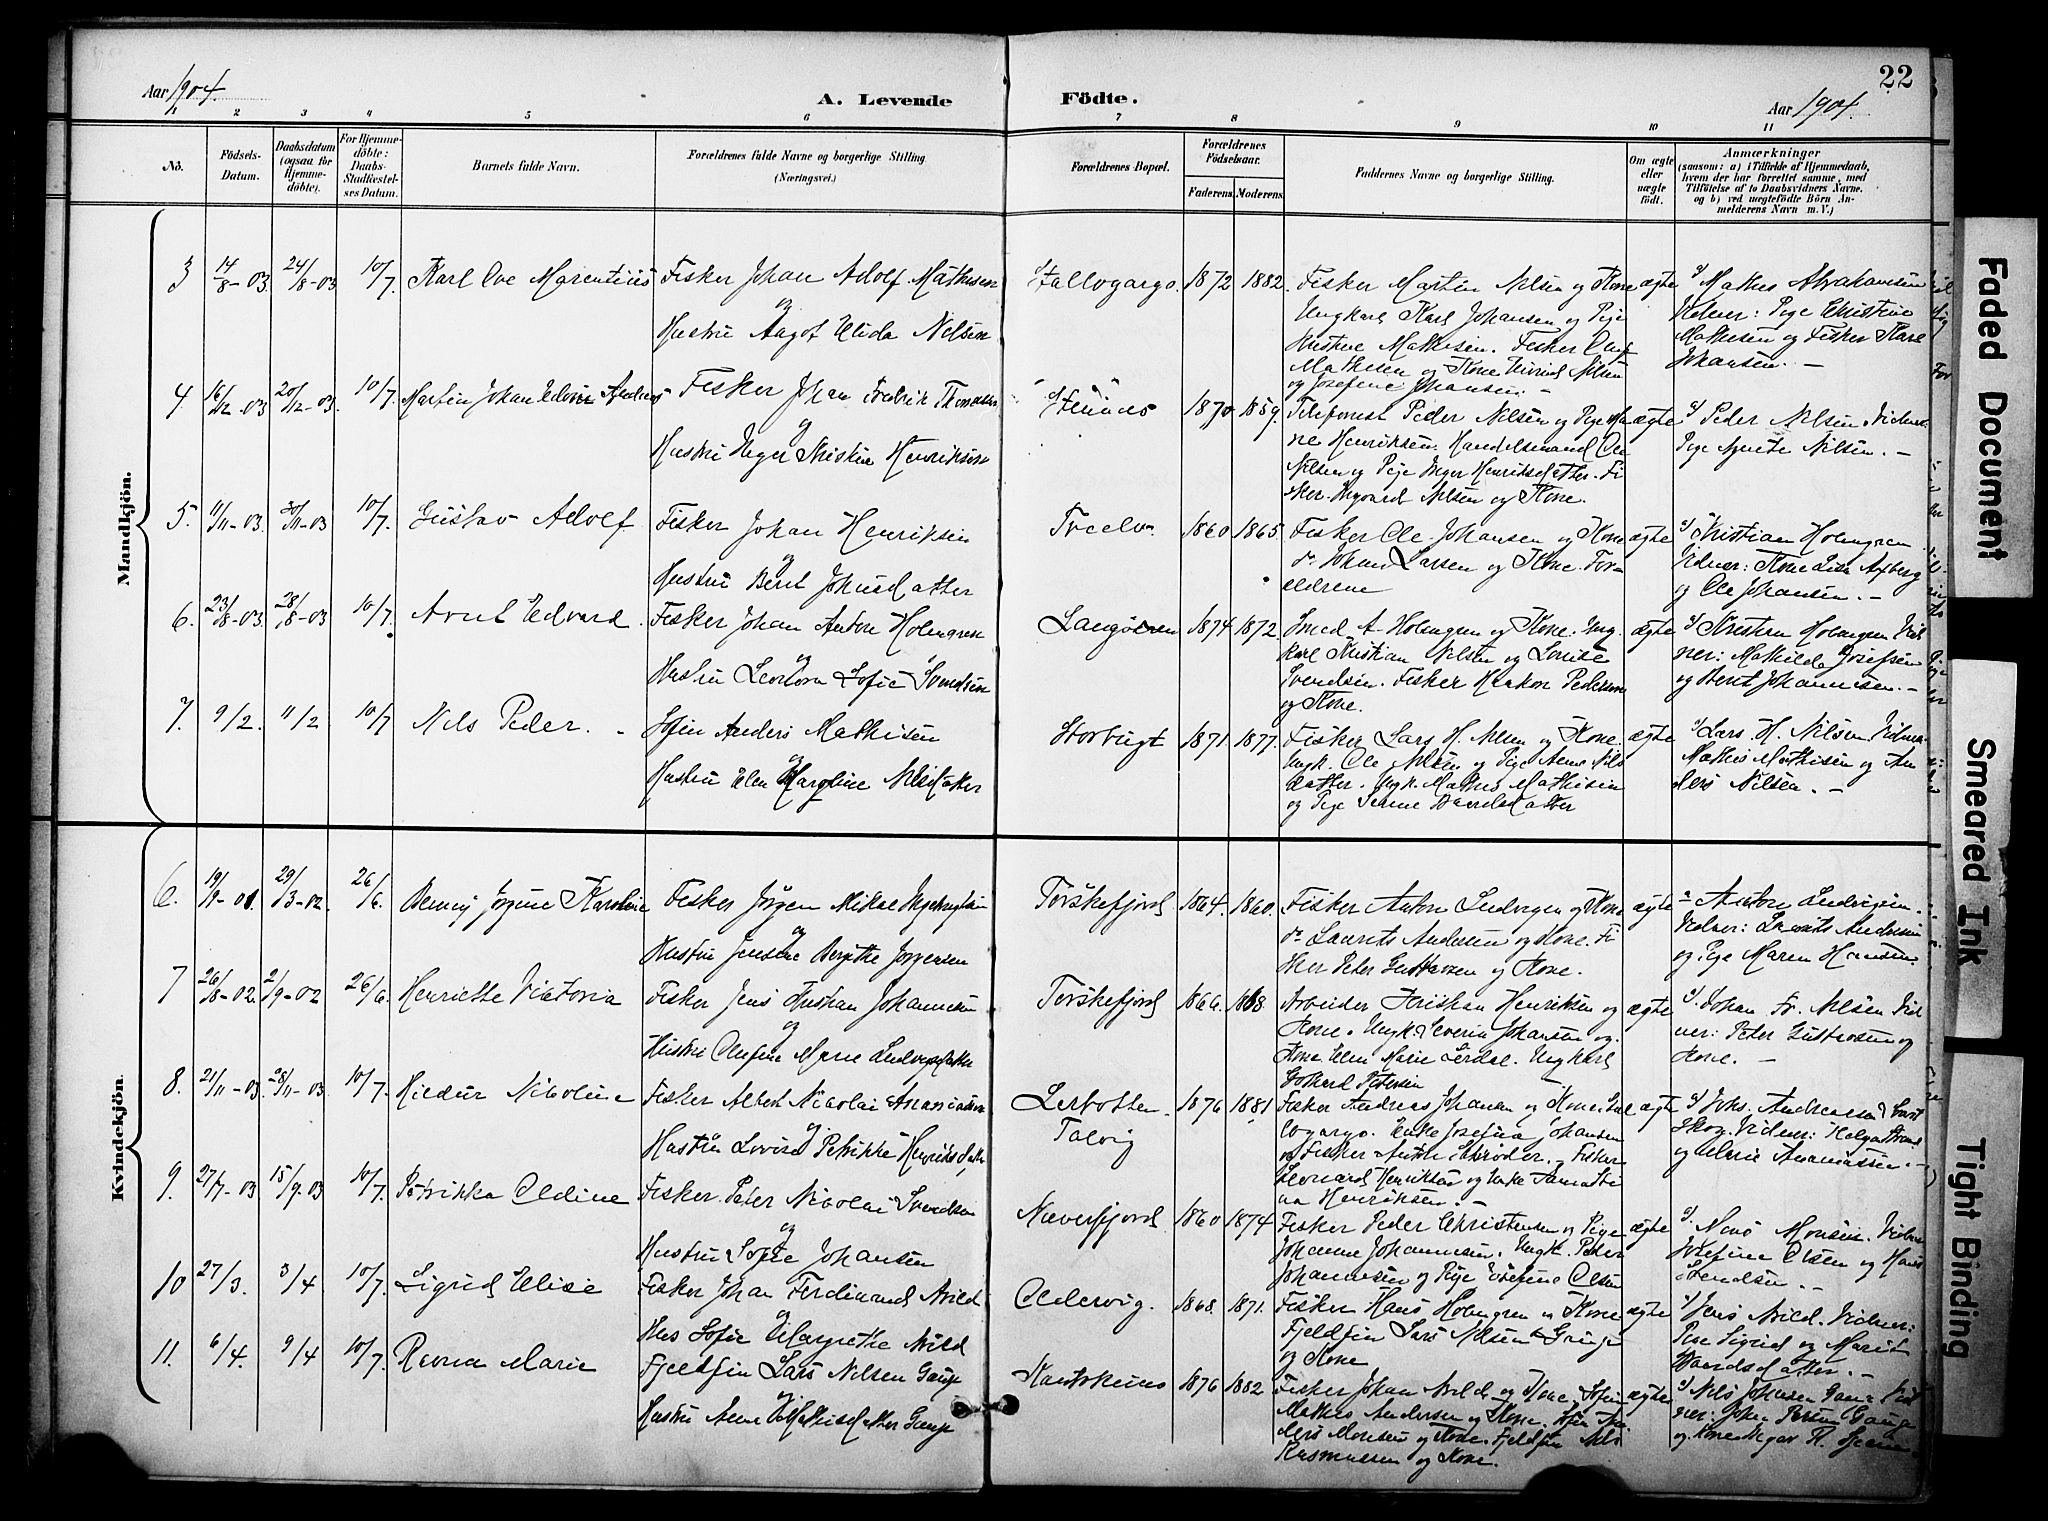 Aar 1904.
A. Levende Födte.
Aar 1904.
22
1 2 3 4 5 6 7 8 9 10 11
No.
Födsels-Datum.
Daabsdatum (ogsaa for Hjemme-döbte).
For Hjemme-döbte: Daabs-Stadfæstel-ses Datum.
Barnets fulde Navn.
Forældrenes fulde Navne og borgerlige Stilling. (Næringsvei.)
Forældrenes Bopæl.
Forældrenes Födselsaar.
Faderens. Moderens.
Faddernes Navne og borgerlige Stilling.
Om ægte eller uægte födt.
Anmærkninger (saasom: a) i Tilfælde af Hjemmedaab, hvem der har forrettet samme, med Tilföielse af to Daabsvidners Navne. og b) ved uægtefödte Börn An-melderens Navn m. V.)
Mandkjön.
3 14/8-03. 24/8-03 10/7. Karl Ove Marentius Fisker Johan Adolf Mathisen
og
Hustru Aagot Elida Nilsen
Stallogargo. 1872 1882. Fisker Martin Nilsen og Kone ægte
Ungkarl Karl Johansen og Pige
Kristine Mathisen. Fisker Oluf
Mathisen og Kone
og Josefine Johansen.
Mathis Abrahamsen
Vidner: Pige Christine
Mathisen og Fisker Kare
Johansen. -
4. 16/12-03 20/12-03. 10/7. Martin Johan Edvin Andreas Fisker Johan Fredrik Thomassen
og
Hustru Inger Kristine Henriksen
1870 1859. Telefonist Peder Nilsen og Pige Ha ægte
ne Henriksen. Handelsmand Ole
Nilsen og Pige Inger Henriksdatter. Fi
sker Nilsen og Kone.
Peder Nilsen. Vidner:
Pige Agnete Nilsen. -
5. 11/11-03. 30/11-03 10/7. Gustav Adolf Fisker Johan Henriksen
og
Hustru Berit Johnsdatter
Tverelv. 1860 1865. Fisker Ole Johansen og Kone ægte
do Johan Larsen og Kone. For
ældrene
Kristian Holmgren.
Vidner: Kone Lisa
og Ole Johansen. -
6. 23/8-03. 28/8-03 10/7. Arnt Edvard. Fisker Johan Anton Holmgren
og
Hustru Leonora Sofie Svendsen
1874 1872. Smed A. Holmgren og Kone. Ung. ægte
karl Kristian Nilsen og Lovise
Svendsen. Fisker Haakon Pedersen
og Kone.
Kristian Holmgren Vid
ner: Mathilde Josefsen
og Berit Johannesen. -
7. 9/2. 11/2 10/7 Nils Peder. Sjøfin Anders Mathisen
og
Hustru Elen Margrine Nilsdatter
Storbugt 1871. 1877. Fisker Lars H. Nilsen og Kone. ægte
Ungk. Ole Nilsen og Pige Anne Nils
datter. Ungk. Mathis Mathisen
og Pige
Lars H. Nilsen. Vidner:
Mathis Mathisen og An
ders Nilsen. -
Kvindekjön.
6. 29/3-02. 26/6. Jörgine Karoline Fisker Jörgen Mikal
og
Hustru Jensine Bergitte Jörgensen
Torskefjord. 1864. 1860. Fisker Anton Ludvigsen og Kone ægte
do Laurits Andersen og Kone. Fi
sker Peter Gustavsen og Kone.
Anton Ludvigsen.
Vidner: Laurits Andersen
og Pige Maren Hansen.
7 26/8-02 2/9-02 26/6. Henriette Viktoria Fisker Jens Kristian Johannesen
og
Hustru Olufine Marie Ludvigsdatter
Torskefjord 1866. 1868. Arbeider Kristian Henriksen og ægte
Kone. Ungk. Severin Johansen og
Kone Elen Marie Lerdal. Ungkarl
Petersen
Johan Fr. Nilsen Vid
ner: Peter Gustavsen og
Kone. -
8. 21/11-03. 28/11-03. 10/7. Hildur Nicoline Fisker Albert Nicolai Ananiassen
og
Hustru Lovise Petrikke Henriksdatter
Lerbotten
Talvig
1876 1881 Fisker Andreas Johansen og Kone Stal ægte
logargo. Enke Josefina Johansen
og Fisker Anton Schrøder. - Fisker
Leonard Henriksen og Enke
Henriksen. -
Johs. Andreassen,
Vidner: Helga
og Marie Ananiassen. -
9. 27/7-03 15/9-03 10/7. Petrikka Oldine Fisker Peter Nicolai Svendsen
og
Hustru Sofie Johansen
Næverfjord 1860 1874. Fisker Peder Christensen og Pige ægte
Johanne Johannesen. Ungk. Peder
Johannesen og Pige Josefine Olsen
Monsen. Vidner:
Josefine Olsen og Hans
Svendsen.
10 27/3. 3/4 10/7. Sigrid Elise Fisker Johan Ferdinand Arild
og
Hus Sofie Margrethe Arild
Oldervig. 1868. 1871. Fisker Hans Holmgren og Kone ægte
Fjeldfin Lars Nilsen Gaup
og Kone
Jens Arild. Vidner:
Pige Sigrid og Marit
11. 6/4. 9/4 10/7 Ravna Marie Fjeldfin Lars Nilsen Gaup
og
Hustru Anne Mathisdatter Gaup
Kautokeino 1876 1882. Fisker Johan Arild og Kone. Sjøfin ægte
Mathis Andersen og Kone. Sjøfin An
ders Monsen og Kone. Fjeldfin Nils
Rasmussen og Kone.
Nils Johansen Gaup Vid
ner: John Persen Gaup
og Kone Inger R.
Faded Document
Smeared Ink
Tight Binding